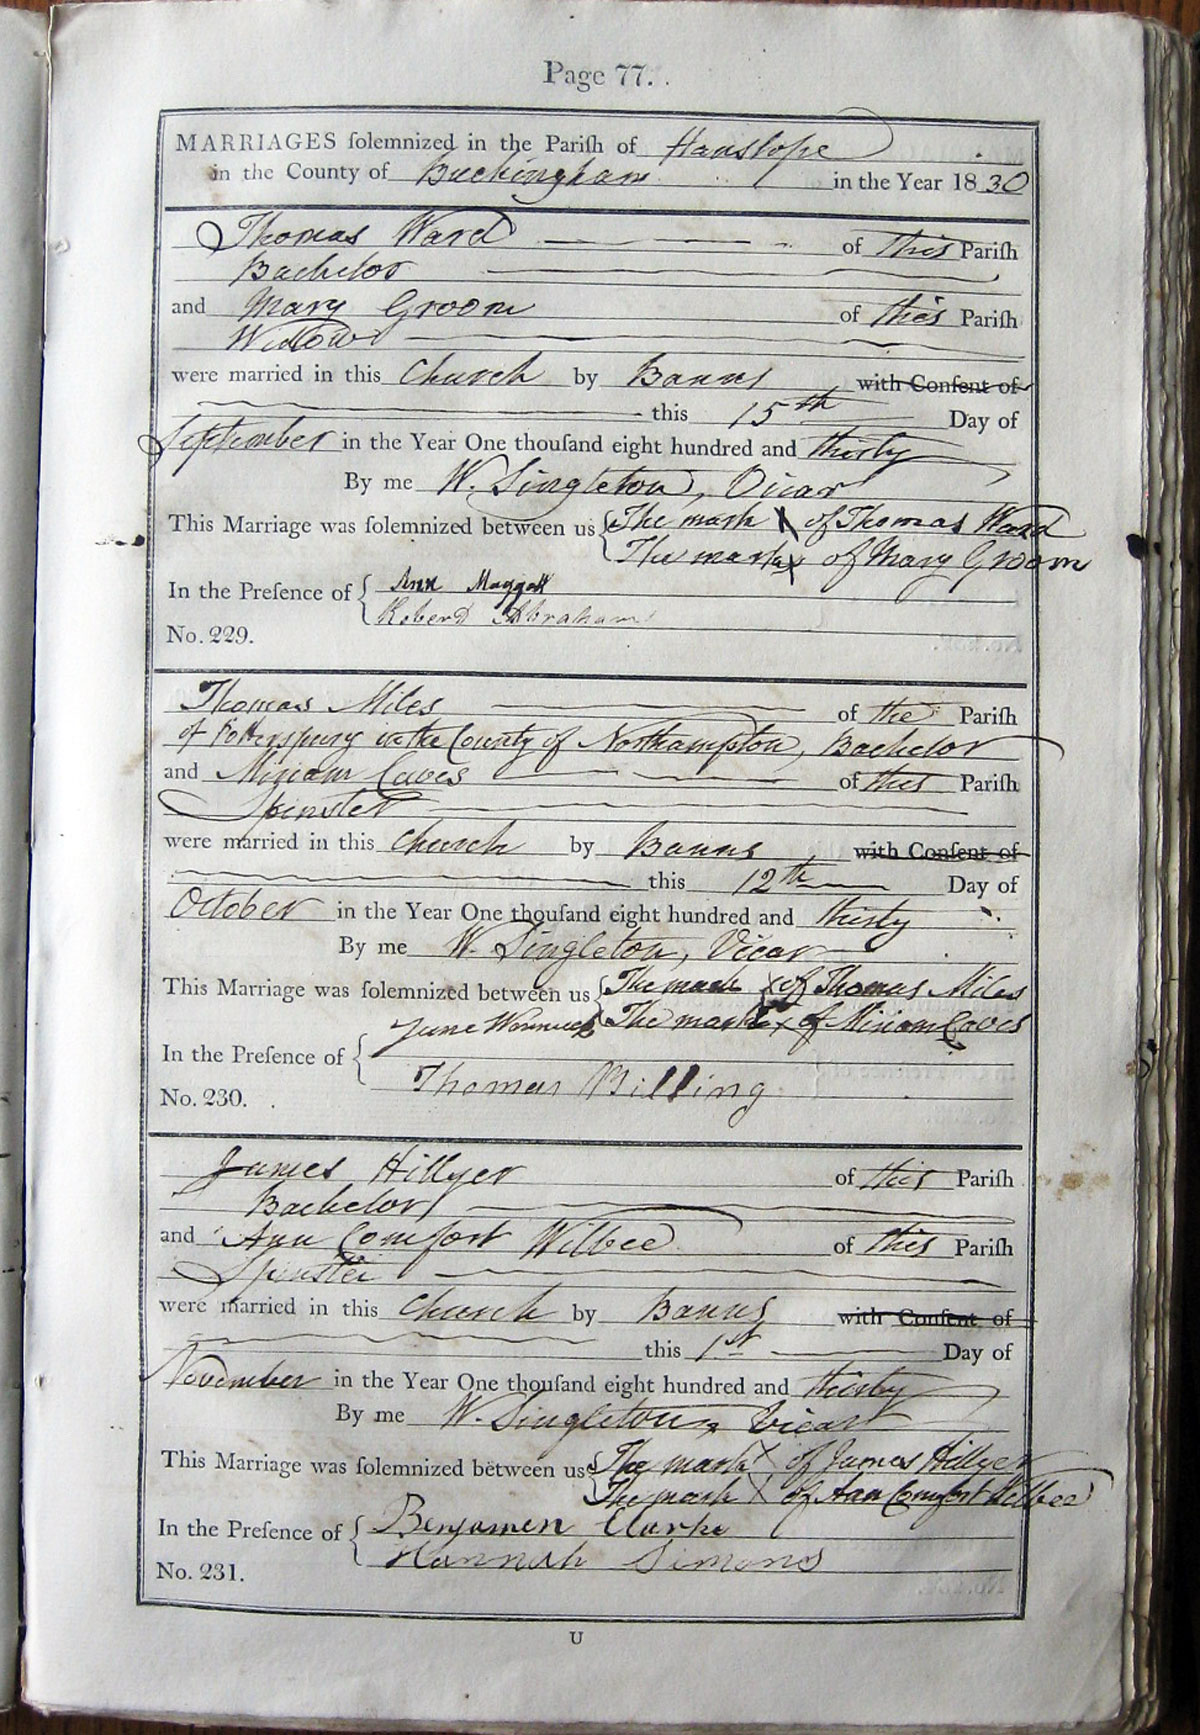 Page 77.
MARRIAGES ſolemnized in the Pariſh of Hanslope
in the County of Buckingham in the Year 1830
Thomas Ward of this Pariſh
Bachelor
and Mary Groom of this Pariſh
Widow
were married in this Church by Banns with Conſent of
this 15th Day of
September in the Year One thouſand eight hundred and thirty
By me W. Singleton, Vicar
This Marriage was ſolemnized between us The mark X of Thomas Ward
The mark X of Mary Groom
In the Preſence of Ann Maggott
Roberd Abraham
No. 229.
Thomas Miles of the Pariſh
of Potterspury in the County of Northampton, Bachelor
and Miriam Caves of this Pariſh
Spinster
were married in this Church by Banns with Conſent of
this 12th Day of
October in the Year One thouſand eight hundred and thirty
By me W. Singleton, Vicar
This Marriage was ſolemnized between us The mark X of Thomas Miles
The mark X of Miriam Caves
In the Preſence of
Thomas Billing
No. 230.
James Hillyer of this Pariſh
Bachelor
and Ann Comfort Wilbee of this Pariſh
Spinster
were married in this Church by Banns with Conſent of
this 1st Day of
November in the Year One thouſand eight hundred and thirty
By me W. Singleton, Vicar
This Marriage was ſolemnized between us The mark X of James Hillyer
The mark X of Ann Comfort Wilbee
In the Preſence of Benjamen Clarke
Hannah Simons
No. 231.
U